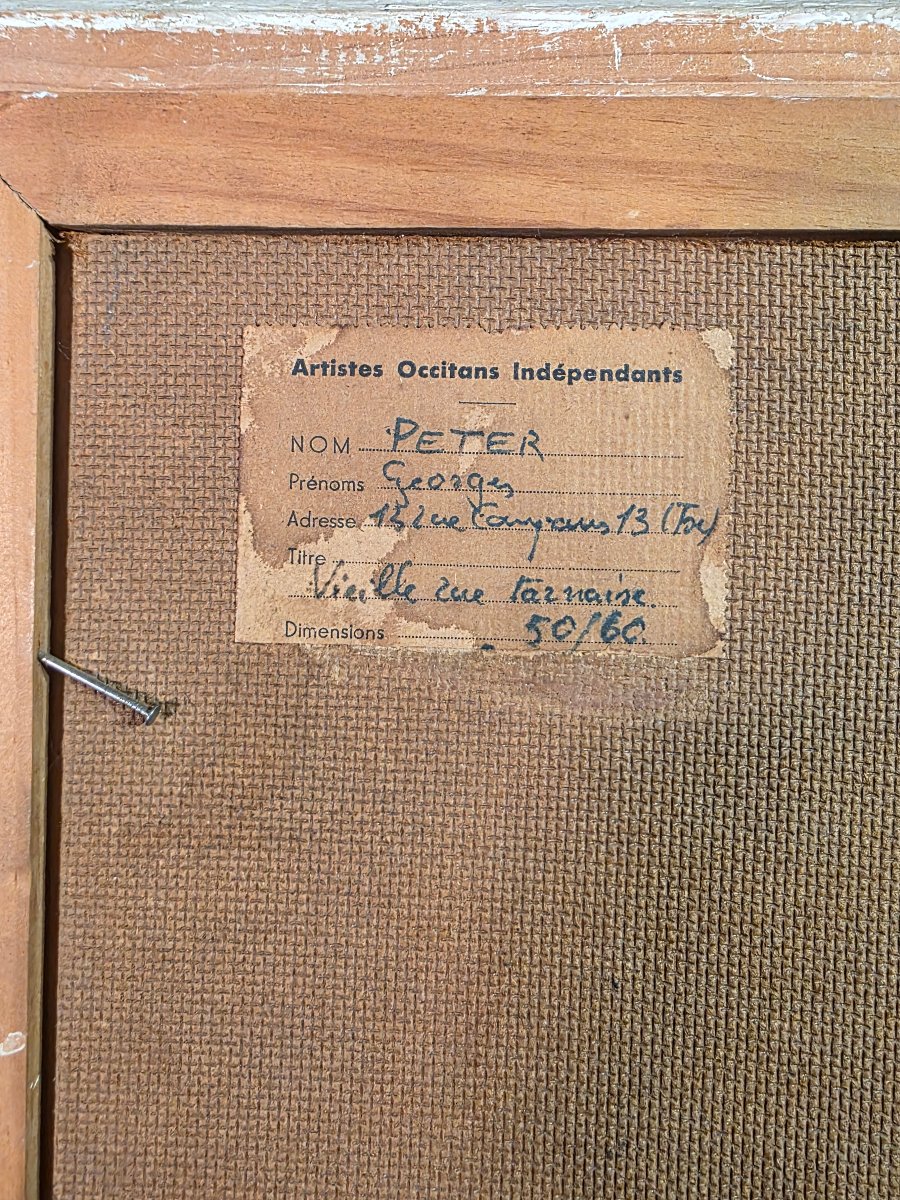 Artistes Occitans Indépendants
NOM PETER
Prénoms Georges
Adresse rue 13
Titre
Vieille rue tarnaise.
Dimensions 50/60